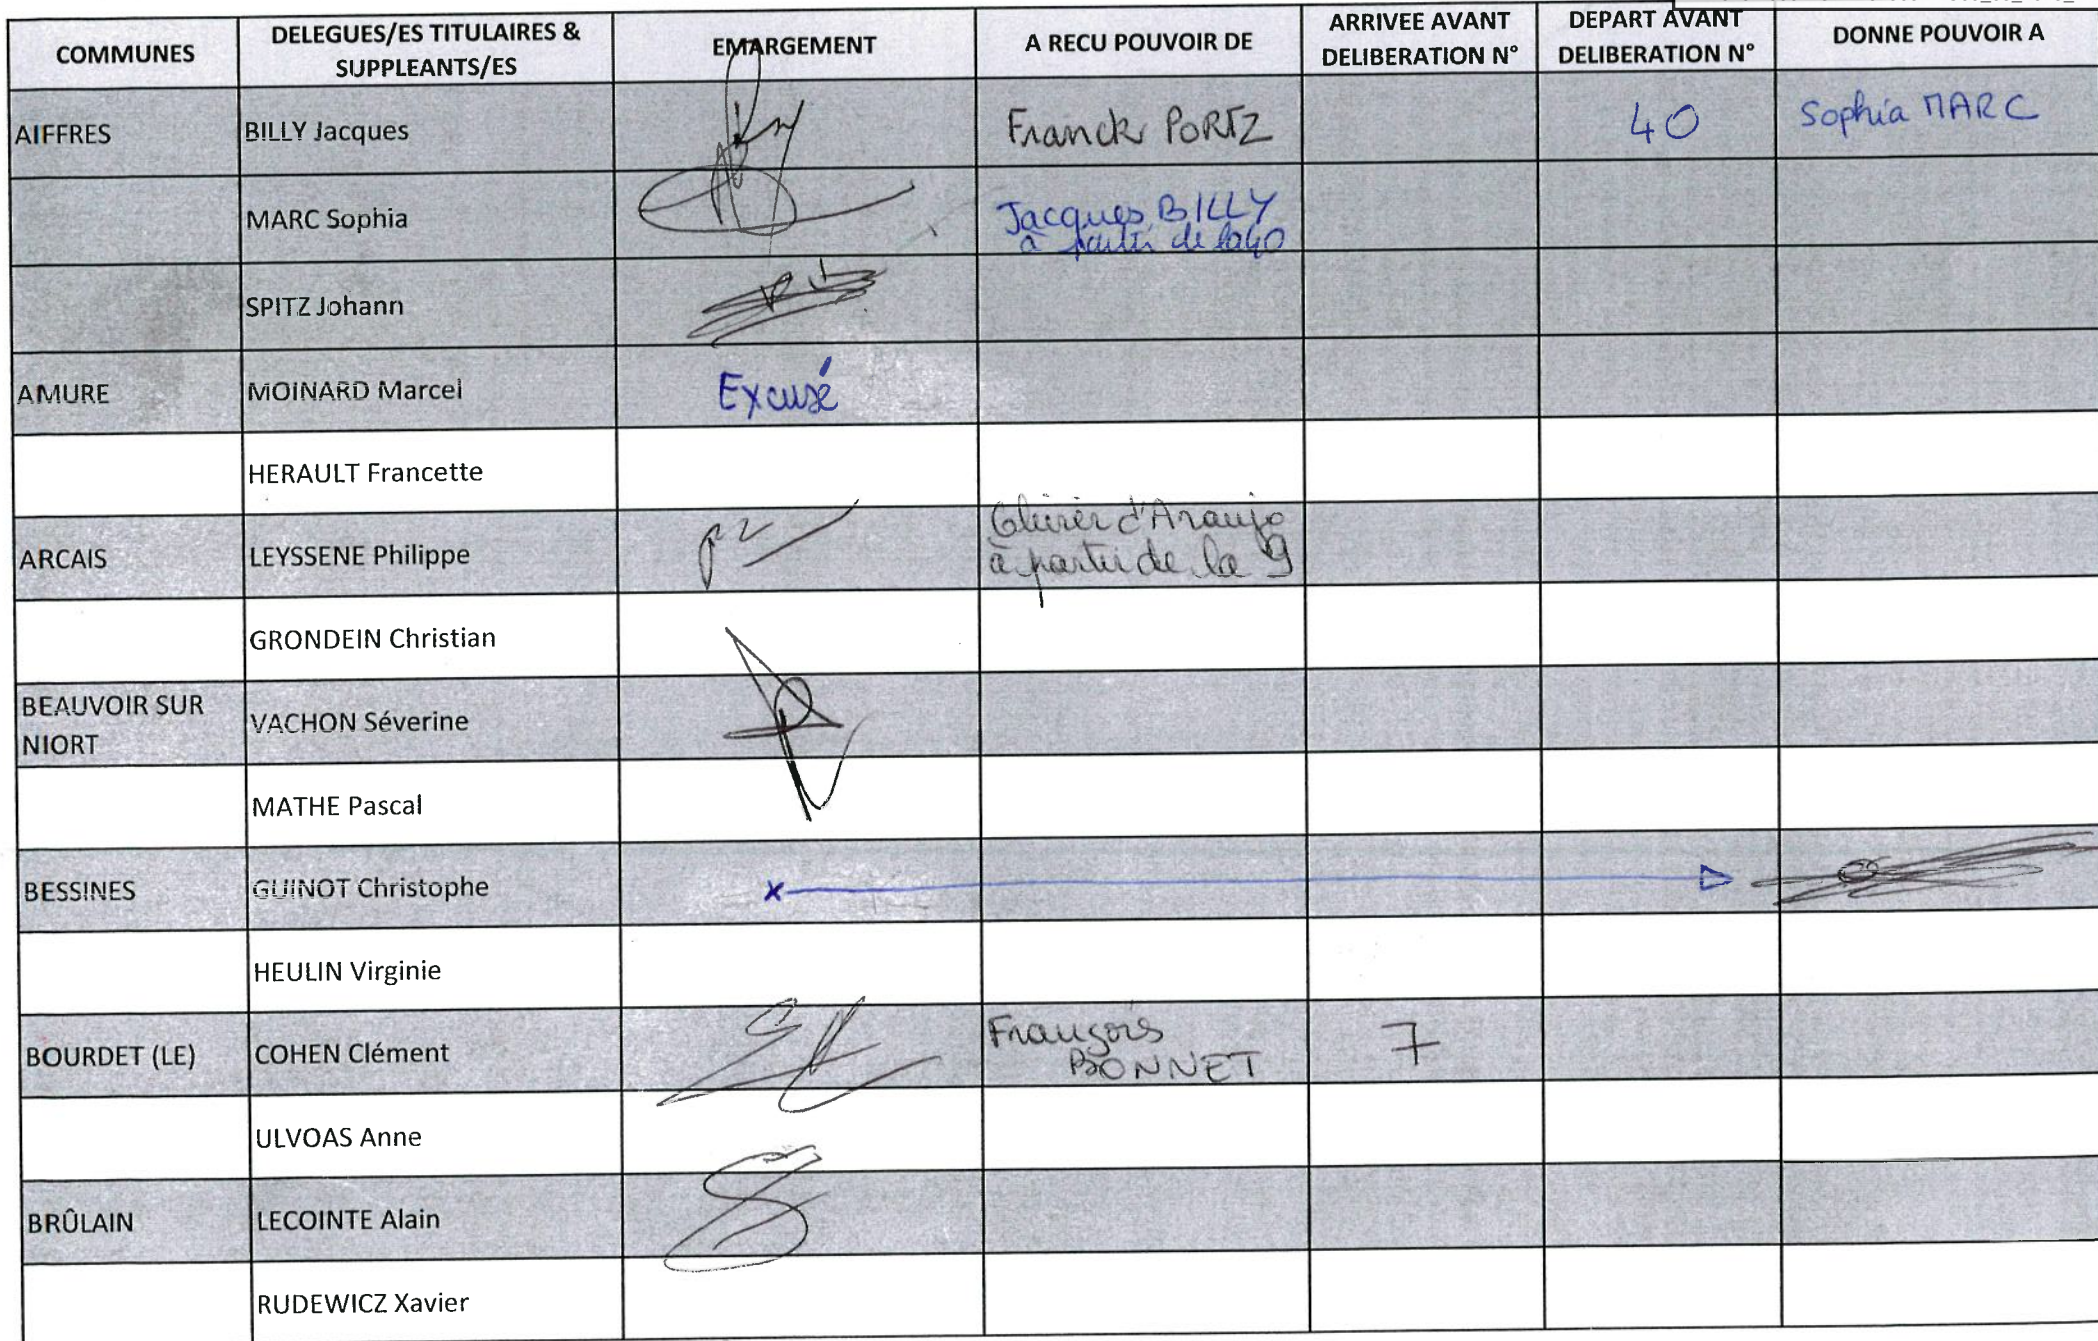 COMMUNES DELEGUES/ES TITULAIRES & SUPPLEANTS/ES EMARGEMENT A RECU POUVOIR DE ARRIVEE AVANT DELIBERATION N° DEPART AVANT DELIBERATION N° DONNE POUVOIR A
AIFFRES BILLY Jacques Franck PORTZ 40 Sophia MARC
MARC Sophia Jacques BILLY
à partir de la 40
SPITZ Johann
AMURE MOINARD Marcel Excusé
HERAULT Francette
ARCAIS LEYSSENE Philippe Olivier d'Araujo
à partir de la 9
GRONDEIN Christian
BEAUVOIR SUR
NIORT VACHON Séverine
MATHE Pascal
BESSINES GUINOT Christophe x
HEULIN Virginie
BOURDET (LE) COHEN Clément François
BONNET 7
ULVOAS Anne
BRÛLAIN LECOINTE Alain
RUDEWICZ Xavier